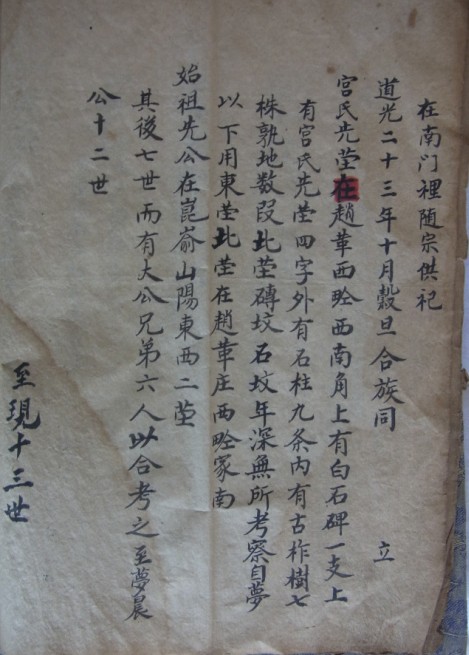 在南门裡随宗供祀
道光二十三年十月穀旦合族同 立
宫氏先茔在趙華西畛西南角上有白石碑一支上
有宫氏先茔四字外有石柱九条内有古柞樹七
株孰地数段此茔磚坟石坟年深無所考察自夢
以下用東茔此茔在趙華庄西畛家南
始祖先公在崑嵛山陽東西二茔
其後七世而有大公兄第六人以合考之至夢晨
公十二世
至現十三世